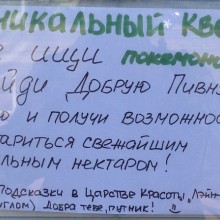 никальный кве
е ищи покемоно
йди Добрую Пивну
ю и получи возможнос
ариться свежайшим
льным нектаром!
Подсказки в Царстве Красоты „Лэйт
углом) Добра тебе, путник! "